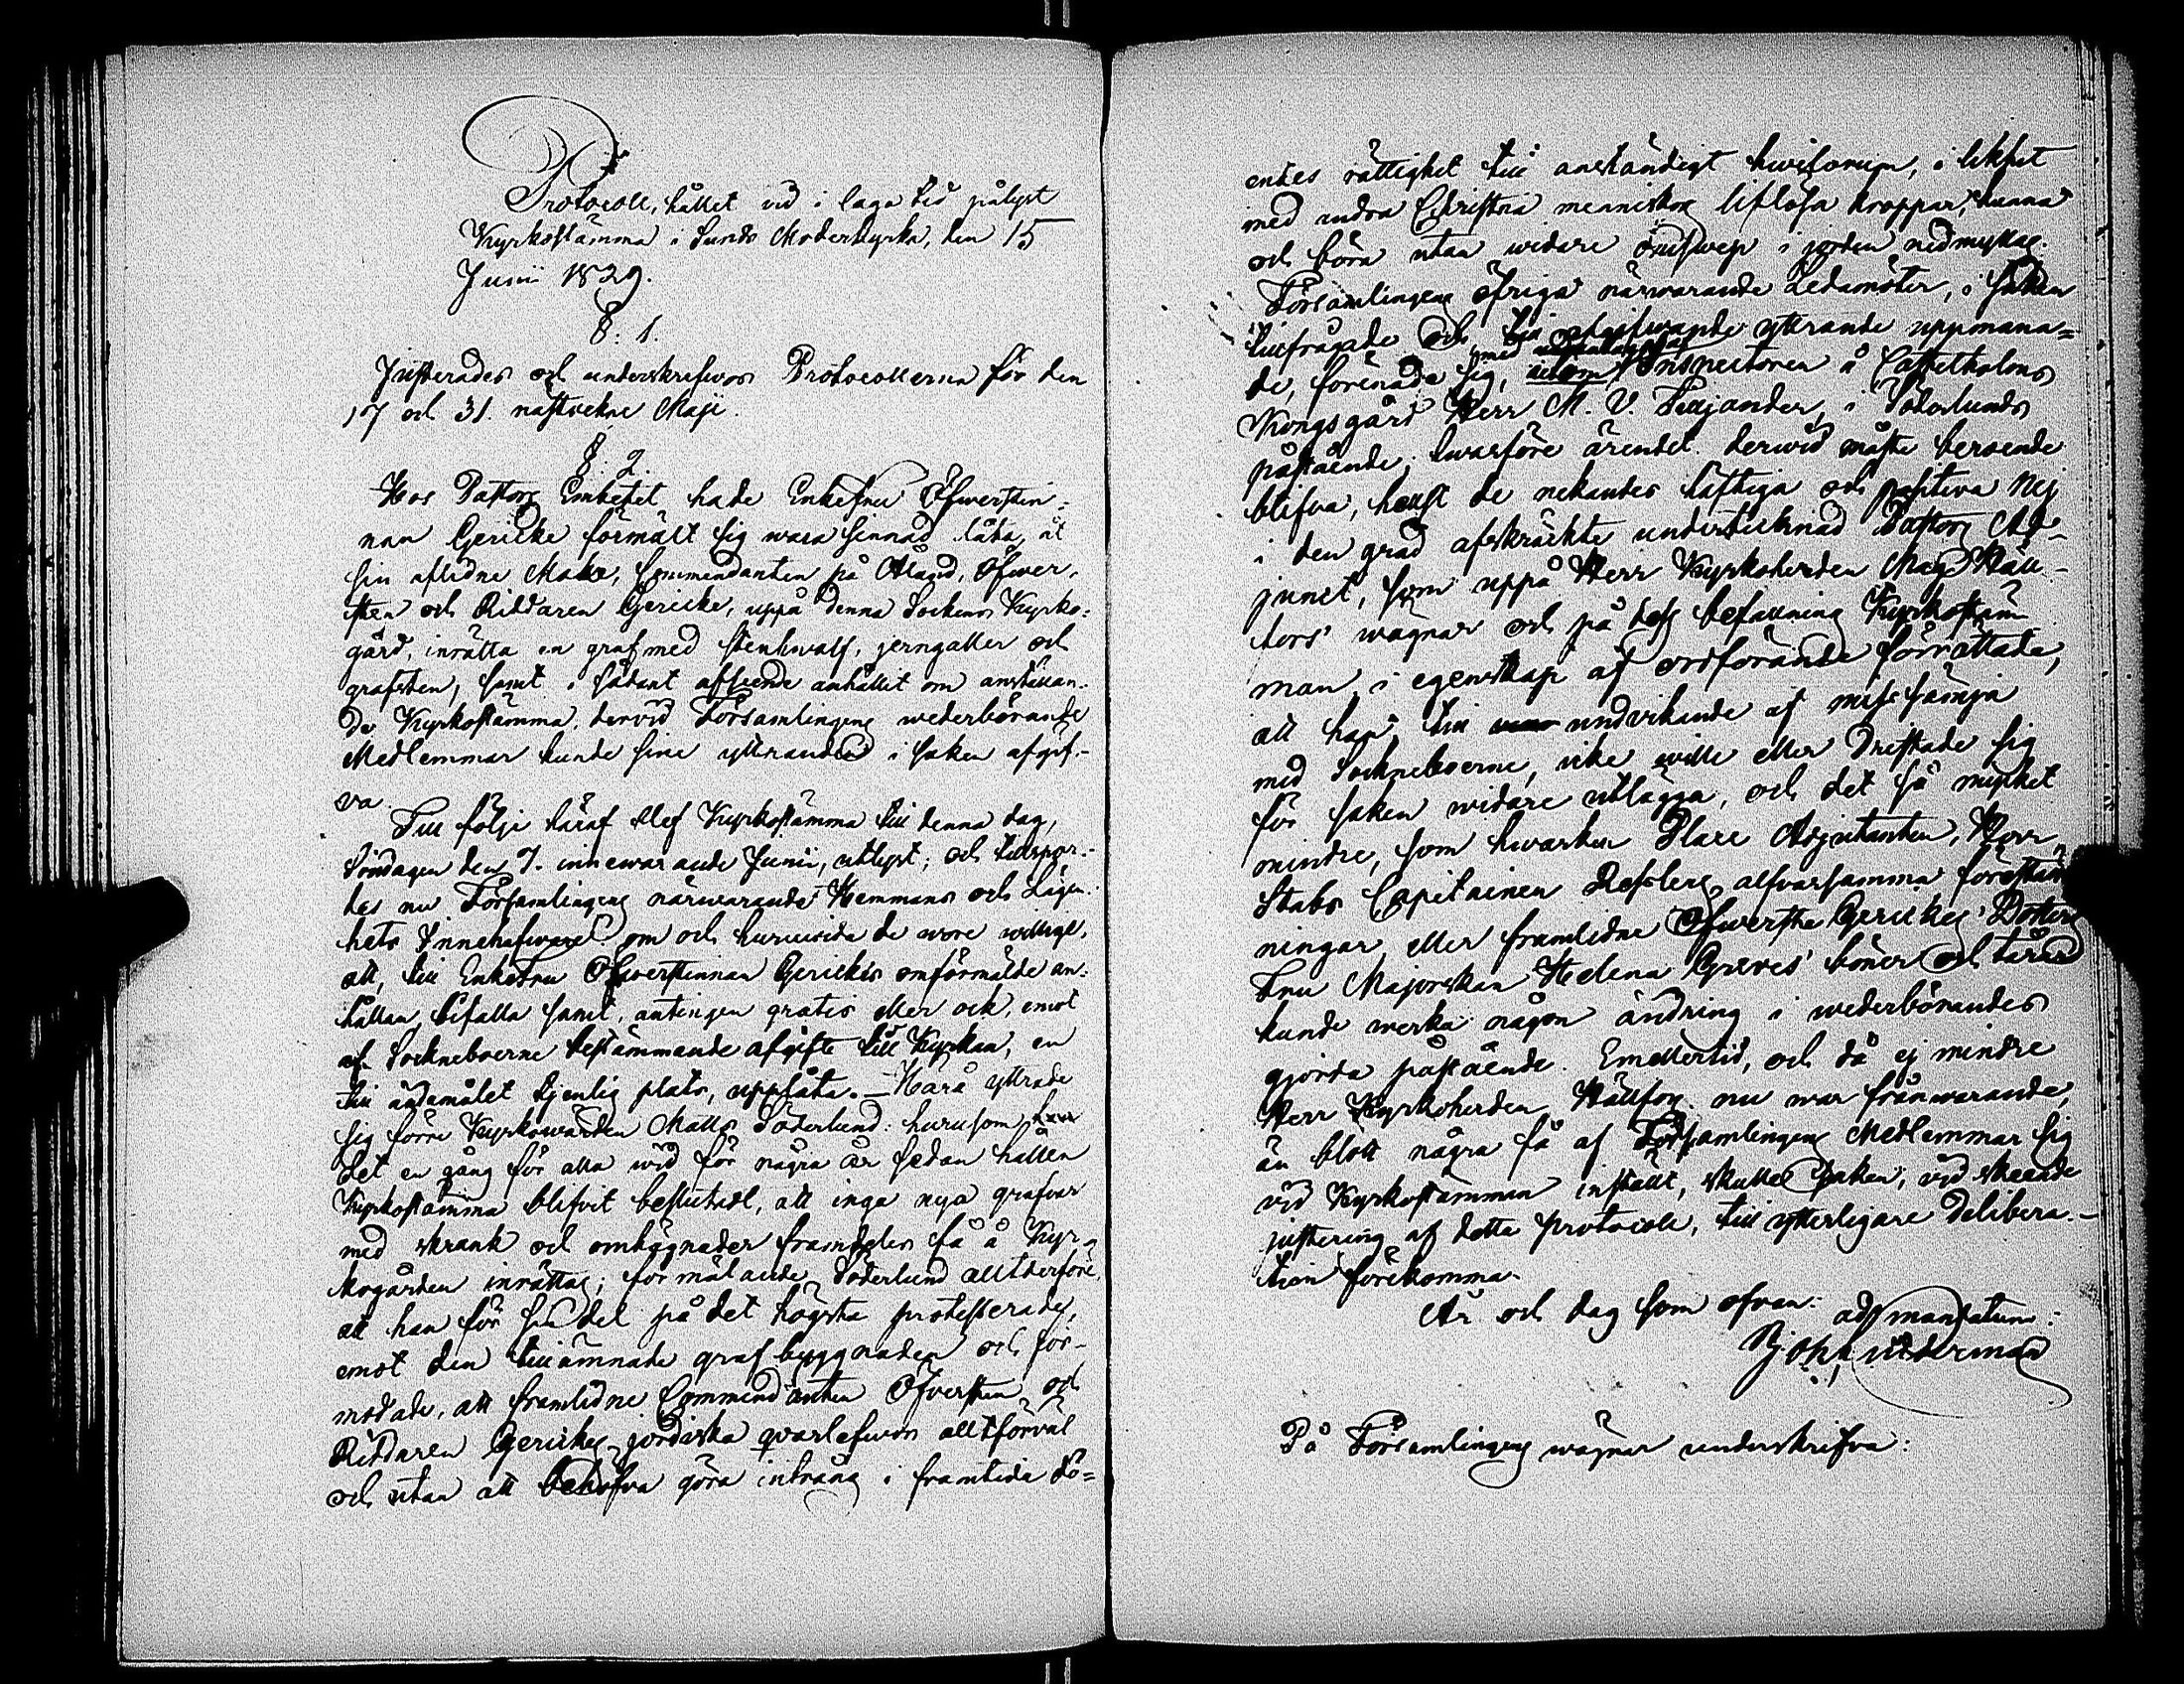 Protocoll, hållet vid i laga tid pålyst
Kyrkostämma i Sunds Moderkyrka, den 15
Junii 1829.
§. 1.
Justerades och underskrefvos Protocollerna för den
17 och 31. nästvekne Maji.
§. 2.
Hos Pastors Embetet hade Enkefru Öfwerstin-
nan Gericke förmält sig wara sinnad låta, åt
sin aflidne Make, Commendanten på Åland, Öfwer-
sten och Riddaren Gericke, uppå denna Sockens Kyrko-
gård, inrätta en graf med stenhwalf, jerngaller och
grafsten, samt i sådant afseende anhållit om anställan-
de Kyrkostämma, dervid Församlingens wederbörande
Medlemmar kunde sine yttranden i saken afgif-
va.
Till följe häraf blef Kyrkostämma till denna dag,
Söndagen den 7. innewarande Junii, utlyst; och tillspor-
des nu Församlingens närwarande Hemmans och Lägen-
hets Innehafware om och huruwida de wore willige,
att, till Enkefru Öfwerstinnan Gerickes omförmälde an-
hållan bifalla samt, antingen gratis eller ock, emot
af Sockneboerne bestämmande afgift till Kyrkan, en
till ändamålet tjenlig plats, upplåta. – Härå yttrade
sig förre Kyrkowärden Matts Söderlund: hurusom
det en gång för alla wid för några år sedan hållen
Kyrkostämma blifvit beslutadt, att inga nya grafvar
med skrank och omhägnader framdeles få å Kyr-
kogården inrättas; förmälande Söderlund alltderföre,
att han för sin del på det högsta protesterade,
emot den tillämnade grafbyggnaden och för-
modade, att framlidne Commendanten Öfversten och
Riddaren Gerickes jordiska qvarlefwor allt förväl
och utan att behöfva göra intrång i framtida dö-
endes rättighet till anständigt hwilorum, i likhet
med andra Christna menniskors liflösa kroppar, kunna
och böra utan widare i jorden nedmyllas.
Församlingens öfriga närwarande Ledamöter, i saken
tillfrågade och till afgifwande yttrande uppmana-
de, förenade sig, med Inspectoren å Castelholms
Kongsgård Herr M. V. Feujander, i Söderlunds
påstående, hwarföre ärendet derwid måste beroende
blifva, helst de nekandes häftiga och positiva Nej
i den grad afskräckte undertecknad Pastors Ad-
junct, som uppå Herr Kyrkoherden Mag Häll-
fors' wägnar och på dess befallning Kyrkostäm-
man i egenskap af ordförande förrättade,
att han, till undvikande af misssämja
med Sockneboerne, icke wille eller dristade sig
för saken widare utlägga, och det så mycket
mindre, som hwarken Place Adjutanten, Herr
Stabs Capitainen Resslers alfvarsamma föreställ-
ningar eller framlidne Öfwerste Gerickes' Dotters
Fru Majorskan Helena Greves' böner och tårar
kunde werka någon ändring i wederbörandes
gjorda påstående. Emellertid, och då ej mindre
Herr Kyrkoherden Hällfors nu war frånwarande,
än blott några få af Församlingens Medlemmar sig
vid Kyrkostämman inställt, skulle saken, vid skeende
justering af detta protocoll, till ytterligare Delibera-
tion förekomma.
År och dag som ofvan. ad mandatum:
Bj: Joh:
På Församlingens wägnar underskrifva: